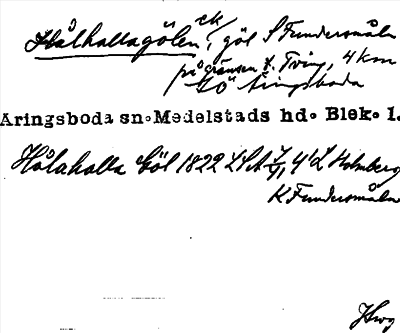 Hålhallagölen, ek, göl S Fundersmåla
på gränsen t. Tving, 4 km
SÖ Aringsboda
Aringsboda sn. Medelstads hd. Blek. l.
Hålahalla Göl 1822 LSA Holmberg
K Fundersmåla